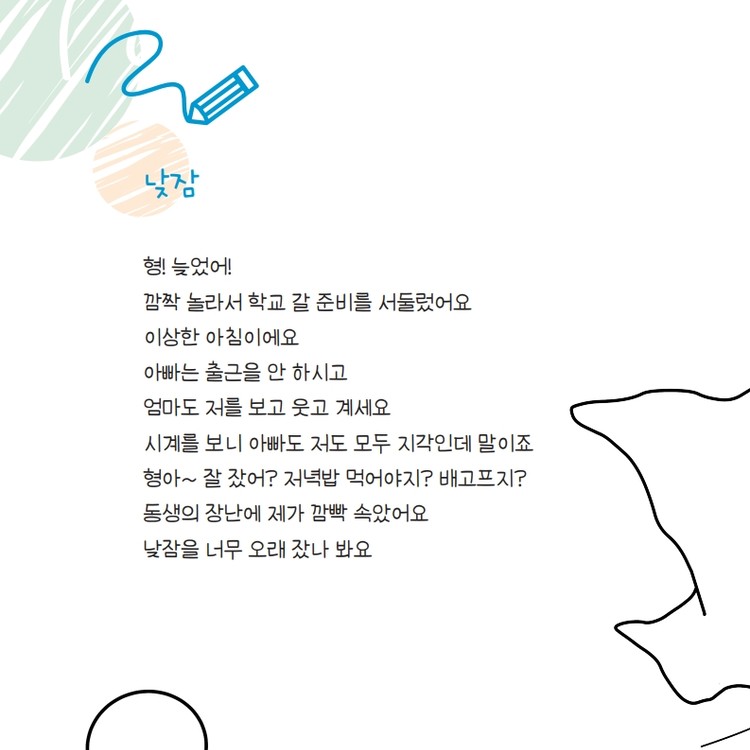 낮잠
형! 늦었어!
깜짝 놀라서 학교 갈 준비를 서둘렀어요
이상한 아침이에요
아빠는 출근을 안 하시고
엄마도 저를 보고 웃고 계세요
시계를 보니 아빠도 저도 모두 지각인데 말이죠
형아~ 잘 잤어? 저녁밥 먹어야지? 배고프지?
동생의 장난에 제가 깜빡 속았어요
낮잠을 너무 오래 잤나 봐요